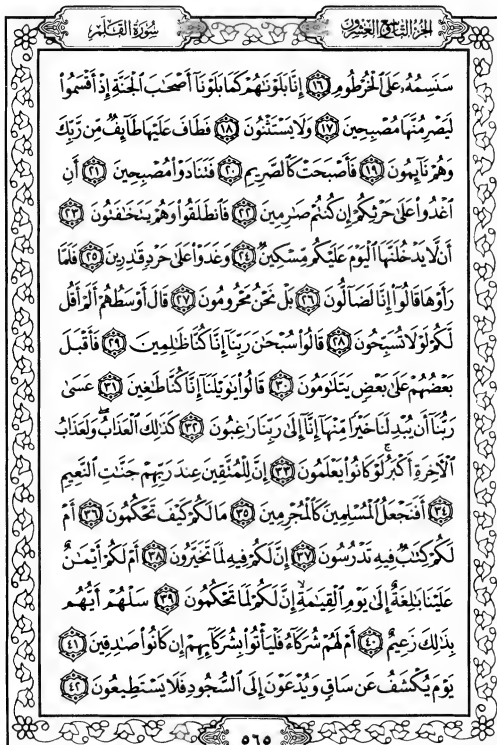 الجزء التاسع والعشرون
سورة القلم
سَنَسِمُهُۥ عَلَى ٱلۡخُرۡطُومِ ۝١٦ إِنَّا بَلَوۡنَٰهُمۡ كَمَا بَلَوۡنَآ أَصۡحَٰبَ ٱلۡجَنَّةِ إِذۡ أَقۡسَمُواْ
لَيَصۡرِمُنَّهَا مُصۡبِحِينَ ۝١٧ وَلَا يَسۡتَثۡنُونَ ۝١٨ فَطَافَ عَلَيۡهَا طَآئِفٞ مِّن رَّبِّكَ
وَهُمۡ نَآئِمُونَ ۝١٩ فَأَصۡبَحَتۡ كَٱلصَّرِيمِ ۝٢٠ فَتَنَادَوۡاْ مُصۡبِحِينَ ۝٢١ أَنِ
ٱغۡدُواْ عَلَىٰ حَرۡثِكُمۡ إِن كُنتُمۡ صَٰرِمِينَ ۝٢٢ فَٱنطَلَقُواْ وَهُمۡ يَتَخَٰفَتُونَ ۝٢٣
أَن لَّا يَدۡخُلَنَّهَا ٱلۡيَوۡمَ عَلَيۡكُم مِّسۡكِينٞ ۝٢٤ وَغَدَوۡاْ عَلَىٰ حَرۡدٖ قَٰدِرِينَ ۝٢٥ فَلَمَّا
رَأَوۡهَا قَالُوٓاْ إِنَّا لَضَآلُّونَ ۝٢٦ بَلۡ نَحۡنُ مَحۡرُومُونَ ۝٢٧ قَالَ أَوۡسَطُهُمۡ أَلَمۡ أَقُل
لَّكُمۡ لَوۡلَا تُسَبِّحُونَ ۝٢٨ قَالُواْ سُبۡحَٰنَ رَبِّنَآ إِنَّا كُنَّا ظَٰلِمِينَ ۝٢٩ فَأَقۡبَلَ
بَعۡضُهُمۡ عَلَىٰ بَعۡضٖ يَتَلَٰوَمُونَ ۝٣٠ قَالُواْ يَٰوَيۡلَنَآ إِنَّا كُنَّا طَٰغِينَ ۝٣١ عَسَىٰ
رَبُّنَآ أَن يُبۡدِلَنَا خَيۡرٗا مِّنۡهَآ إِنَّآ إِلَىٰ رَبِّنَا رَٰغِبُونَ ۝٣٢ كَذَٰلِكَ ٱلۡعَذَابُۖ وَلَعَذَابُ
ٱلۡأٓخِرَةِ أَكۡبَرُۚ لَوۡ كَانُواْ يَعۡلَمُونَ ۝٣٣ إِنَّ لِلۡمُتَّقِينَ عِندَ رَبِّهِمۡ جَنَّٰتِ ٱلنَّعِيمِ
۝٣٤ أَفَنَجۡعَلُ ٱلۡمُسۡلِمِينَ كَٱلۡمُجۡرِمِينَ ۝٣٥ مَا لَكُمۡ كَيۡفَ تَحۡكُمُونَ ۝٣٦ أَمۡ
لَكُمۡ كِتَٰبٞ فِيهِ تَدۡرُسُونَ ۝٣٧ إِنَّ لَكُمۡ فِيهِ لَمَا تَخَيَّرُونَ ۝٣٨ أَمۡ لَكُمۡ أَيۡمَٰنٌ
عَلَيۡنَا بَٰلِغَةٌ إِلَىٰ يَوۡمِ ٱلۡقِيَٰمَةِۙ إِنَّ لَكُمۡ لَمَا تَحۡكُمُونَ ۝٣٩ سَلۡهُمۡ أَيُّهُم
بِذَٰلِكَ زَعِيمٌ ۝٤٠ أَمۡ لَهُمۡ شُرَكَآءُ فَلۡيَأۡتُواْ بِشُرَكَآئِهِمۡ إِن كَانُواْ صَٰدِقِينَ ۝٤١
يَوۡمَ يُكۡشَفُ عَن سَاقٖ وَيُدۡعَوۡنَ إِلَى ٱلسُّجُودِ فَلَا يَسۡتَطِيعُونَ ۝٤٢
٥٦٥